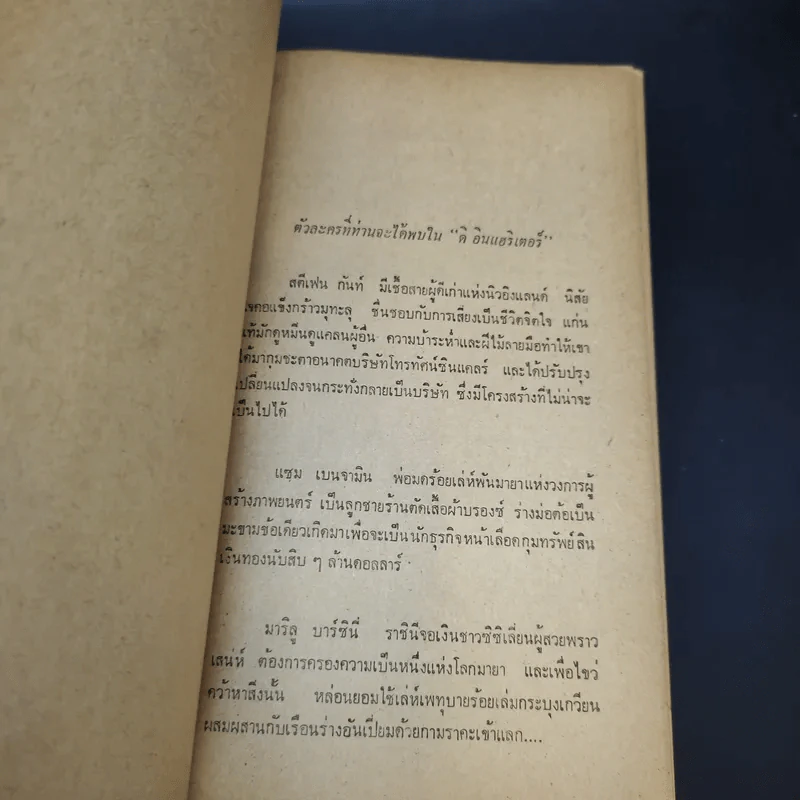 ตัวละครที่ท่านจะได้พบใน “ดิ อินแฮริเตอร์”
สตีเฟน กันท์ มีเชื้อสายผู้ดีเก่าแห่งนิวอิงแลนด์ นิสัย
ใจคอแข็งกร้าวมุทะลุ ชื่นชอบกับการเสี่ยงเป็นชีวิตจิตใจ แก่น
แท้มักดูหมิ่นดูแคลนผู้อื่น ความบ้าระห่ำและฝีไม้ลายมือทำให้เขา
ได้มากุมชะตาอนาคตบริษัทโทรทัศน์ซินแคลร์ และได้ปรับปรุง
เปลี่ยนแปลงจนกระทั่งกลายเป็นบริษัท ซึ่งมีโครงสร้างที่ไม่น่าจะ
เป็นไปได้
แซม เบนจามิน พ่อมดร้อยเล่ห์พันมายาแห่งวงการผู้
สร้างภาพยนตร์ เป็นลูกชายร้านตัดเสื้อผ้าบรองซ์ ร่างม่อต้อเป็น
มะขามข้อเดียวเกิดมาเพื่อจะเป็นนักธุรกิจหน้าเลือดกุมทรัพย์สิน
เงินทองนับสิบ ๆ ล้านดอลลาร์
มาริลู บาร์ซินี่ ราชินีจอเงินชาวซิซิเลี่ยนผู้สวยพราว
เสน่ห์ ต้องการครองความเป็นหนึ่งแห่งโลกมายา และเพื่อไขว่
คว้าหาสิ่งนั้น หล่อนยอมใช้เล่ห์เพทุบายร้อยเล่มกระบุงเกวียน
ผสมผสานกับเรือนร่างอันเปี่ยมด้วยกามราคะเข้าแลก....